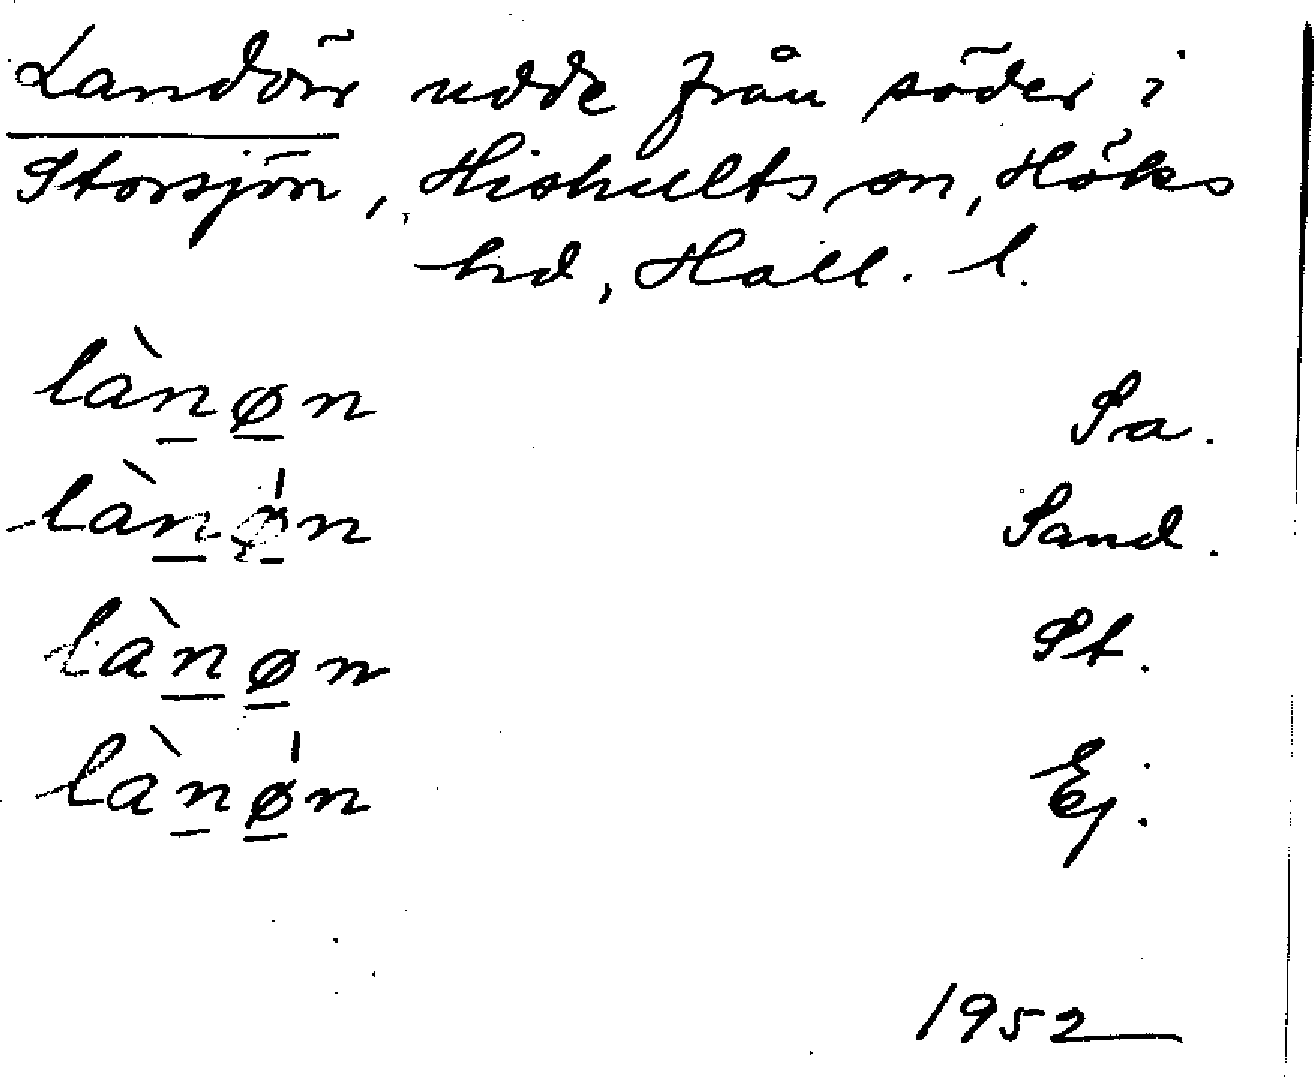 Landön udde från söder i
Storsjön, Hishults sn, Höks
hd, Hall. l.
lànøn Sa.
lànø̍n Sand.
lànøn St.
lànø̍n Ej.
1952